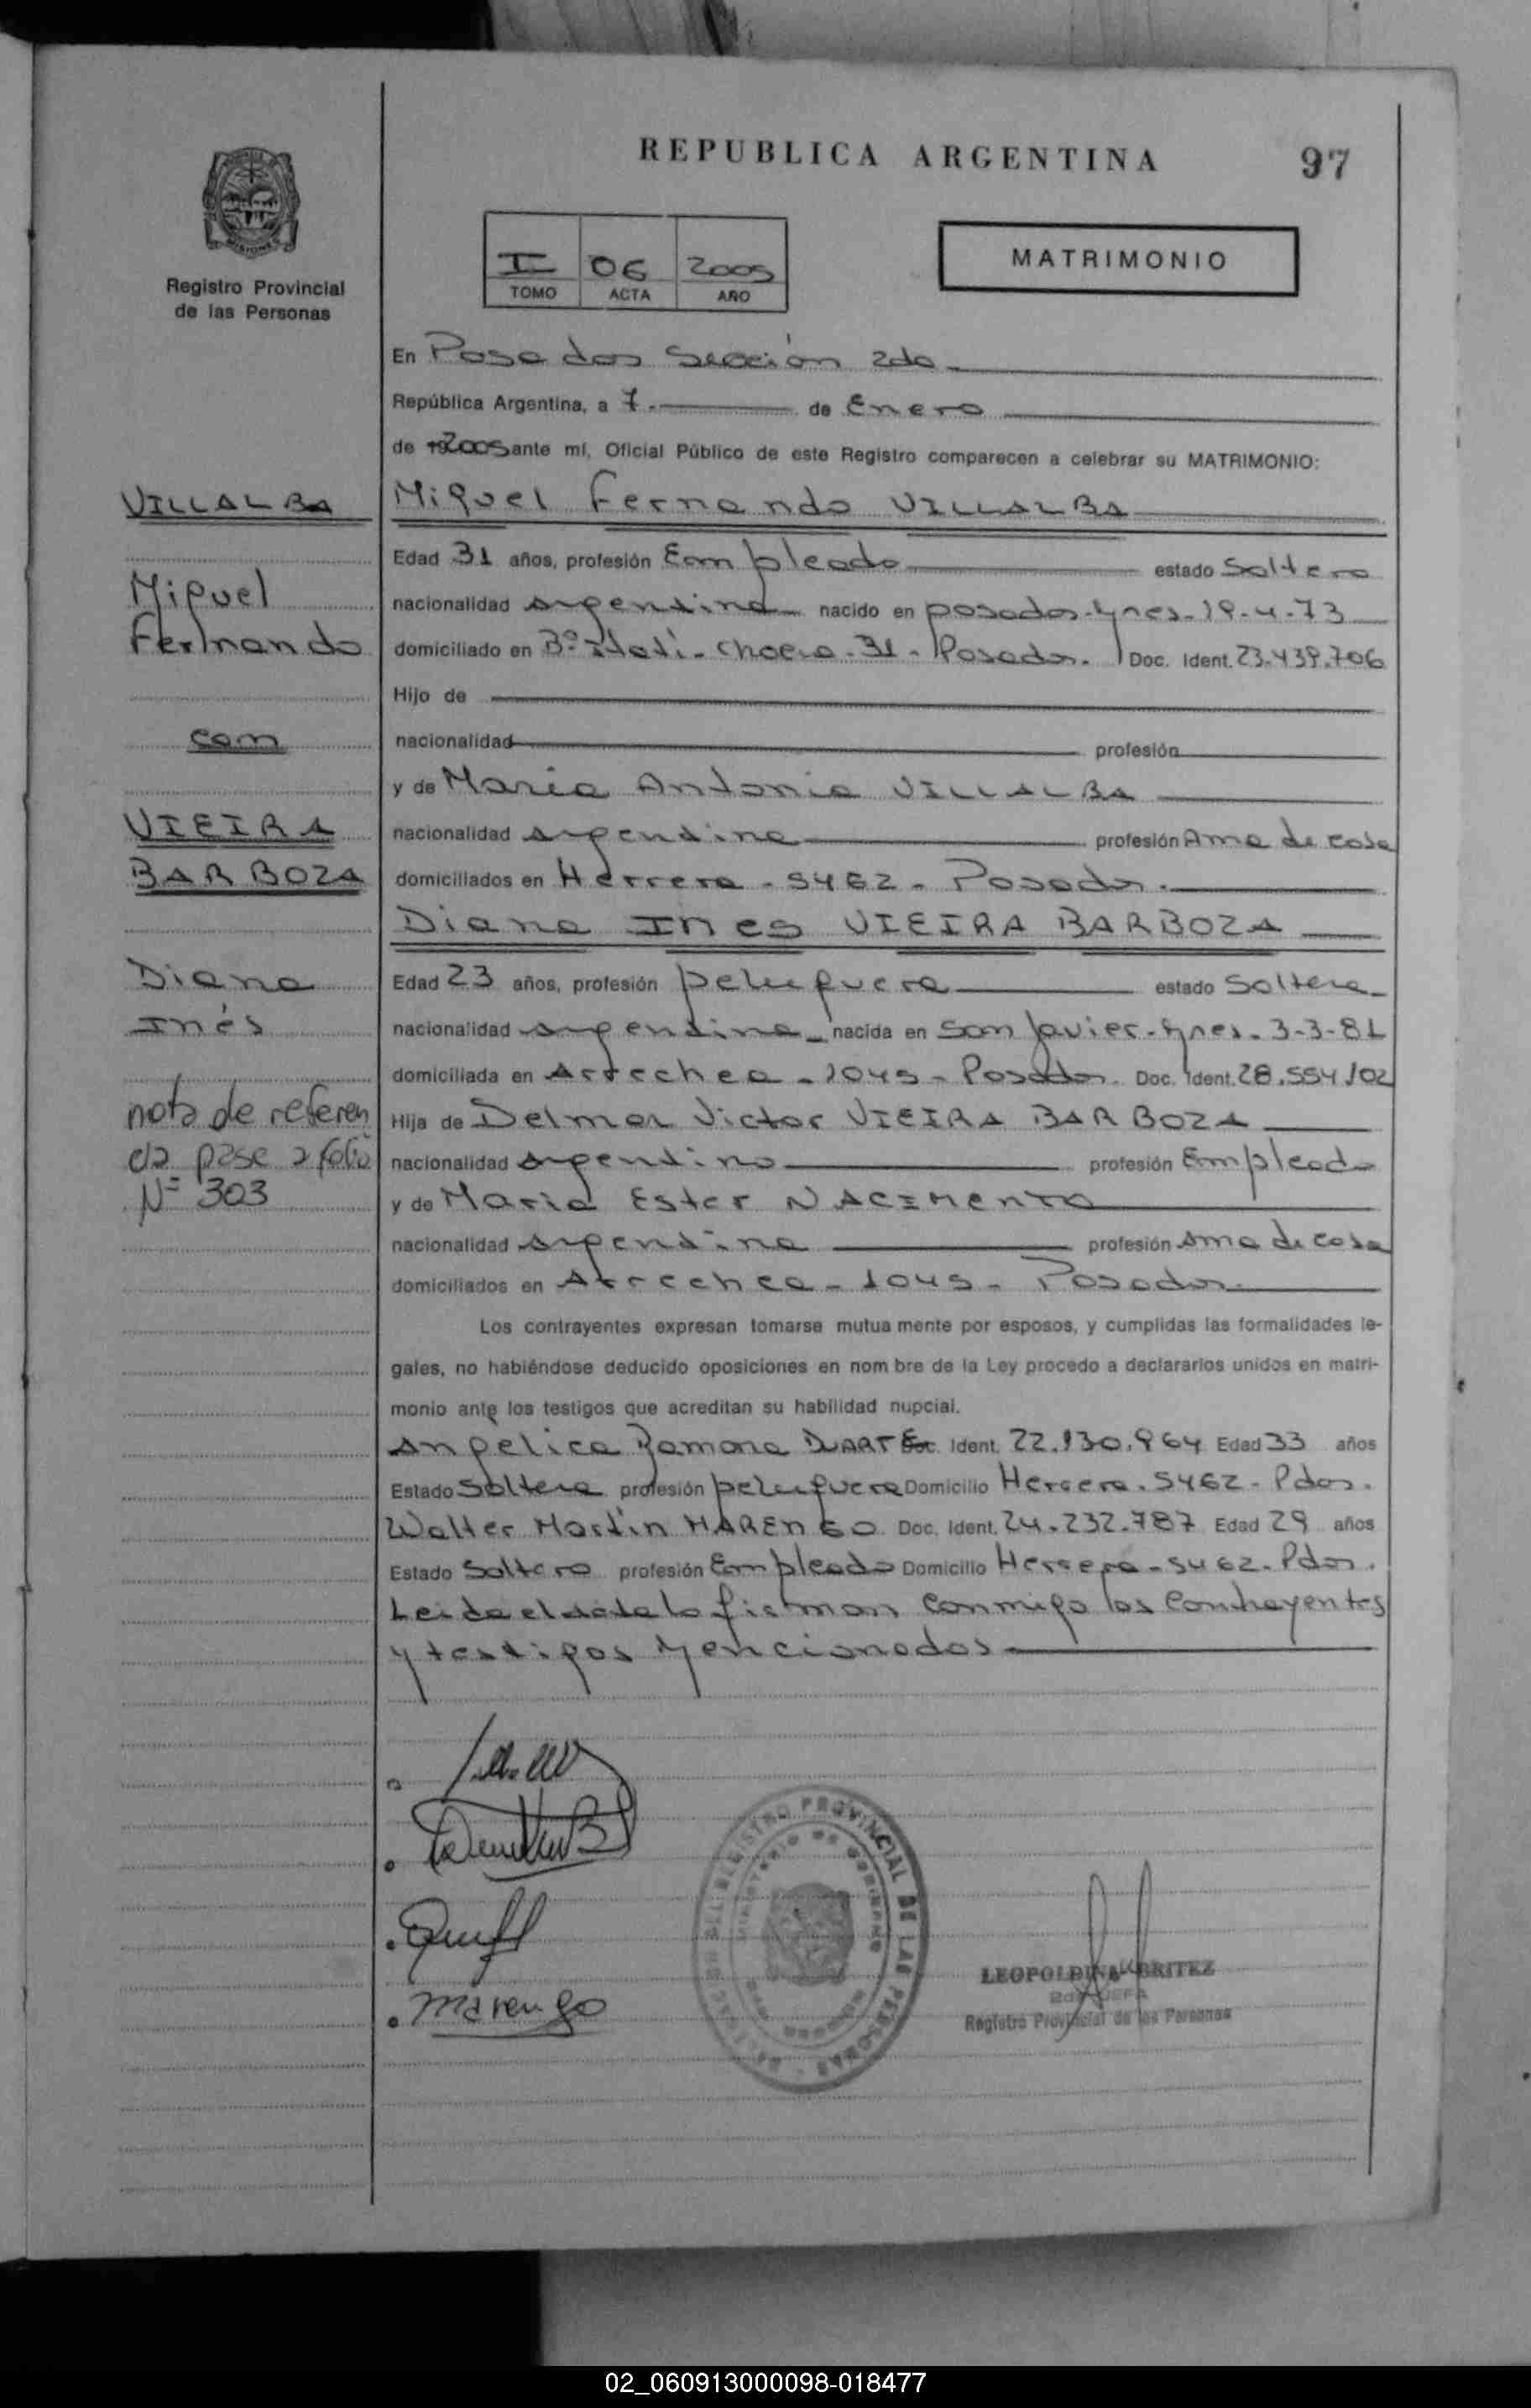 REPUBLICA ARGENTINA
97
Registro Provincial
de las Personas
I 06 2005
TOMO ACTA AÑO
MATRIMONIO
En Posadas Sección 2da
República Argentina, a 7.- de Enero
de 192005 ante mí, Oficial Público de este Registro comparecen a celebrar su MATRIMONIO:
VILLALBA
Miguel
Fernando
con
VIEIRA
BARBOZA
Diana
Inés
nota de referen
cia pase a folio
Nº 303
Miguel Fernando VILLALBA
Edad 31 años, profesión Empleado estado Soltero
nacionalidad argentina nacido en posadas-Mnes-19-4-73
domiciliado en Bº Itatí - Chacra - 31 - Posadas. Doc. Ident. 23.439.706
Hijo de
nacionalidad profesión
y de Maria Antonia VILLALBA
nacionalidad argentina profesión Ama de casa
domiciliados en Herrera - 5462 - Posadas.
Diana Ines VIEIRA BARBOZA
Edad 23 años, profesión peluquera estado Soltera
nacionalidad argentina nacida en San Javier-Mnes- 3-3-81
domiciliada en Arrechea - 1045 - Posadas. Doc. Ident. 28.554.102
Hija de Delmar Victor VIEIRA BARBOZA
nacionalidad argentino profesión Empleado
y de Maria Ester NACIMENTO
nacionalidad argentina profesión Ama de casa
domiciliados en Arrechea - 1045 - Posadas.
Los contrayentes expresan tomarse mutua mente por esposos, y cumplidas las formalidades le-
gales, no habiéndose deducido oposiciones en nom bre de la Ley procedo a declararlos unidos en matri-
monio ante los testigos que acreditan su habilidad nupcial.
Angelica Ramona DUARTE Doc. Ident. 22.130.964 Edad 33 años
Estado Soltera profesión peluquera Domicilio Herrera. 5462 - Pdas.
Walter Martin MARENGO Doc. Ident. 24.232.787 Edad 29 años
Estado Soltero profesión Empleado Domicilio Herrera - 5462 - Pdas.
Leida el acta la firman conmigo los Contrayentes
y testigos Mencionados
Marengo
REGISTRO PROVINCIAL DE LAS PERSONAS
MINISTERIO DE GOBIERNO
LEOPOLDINA BRITEZ
2da JEFA
Registro Provincial de las Personas
02_060913000098-018477